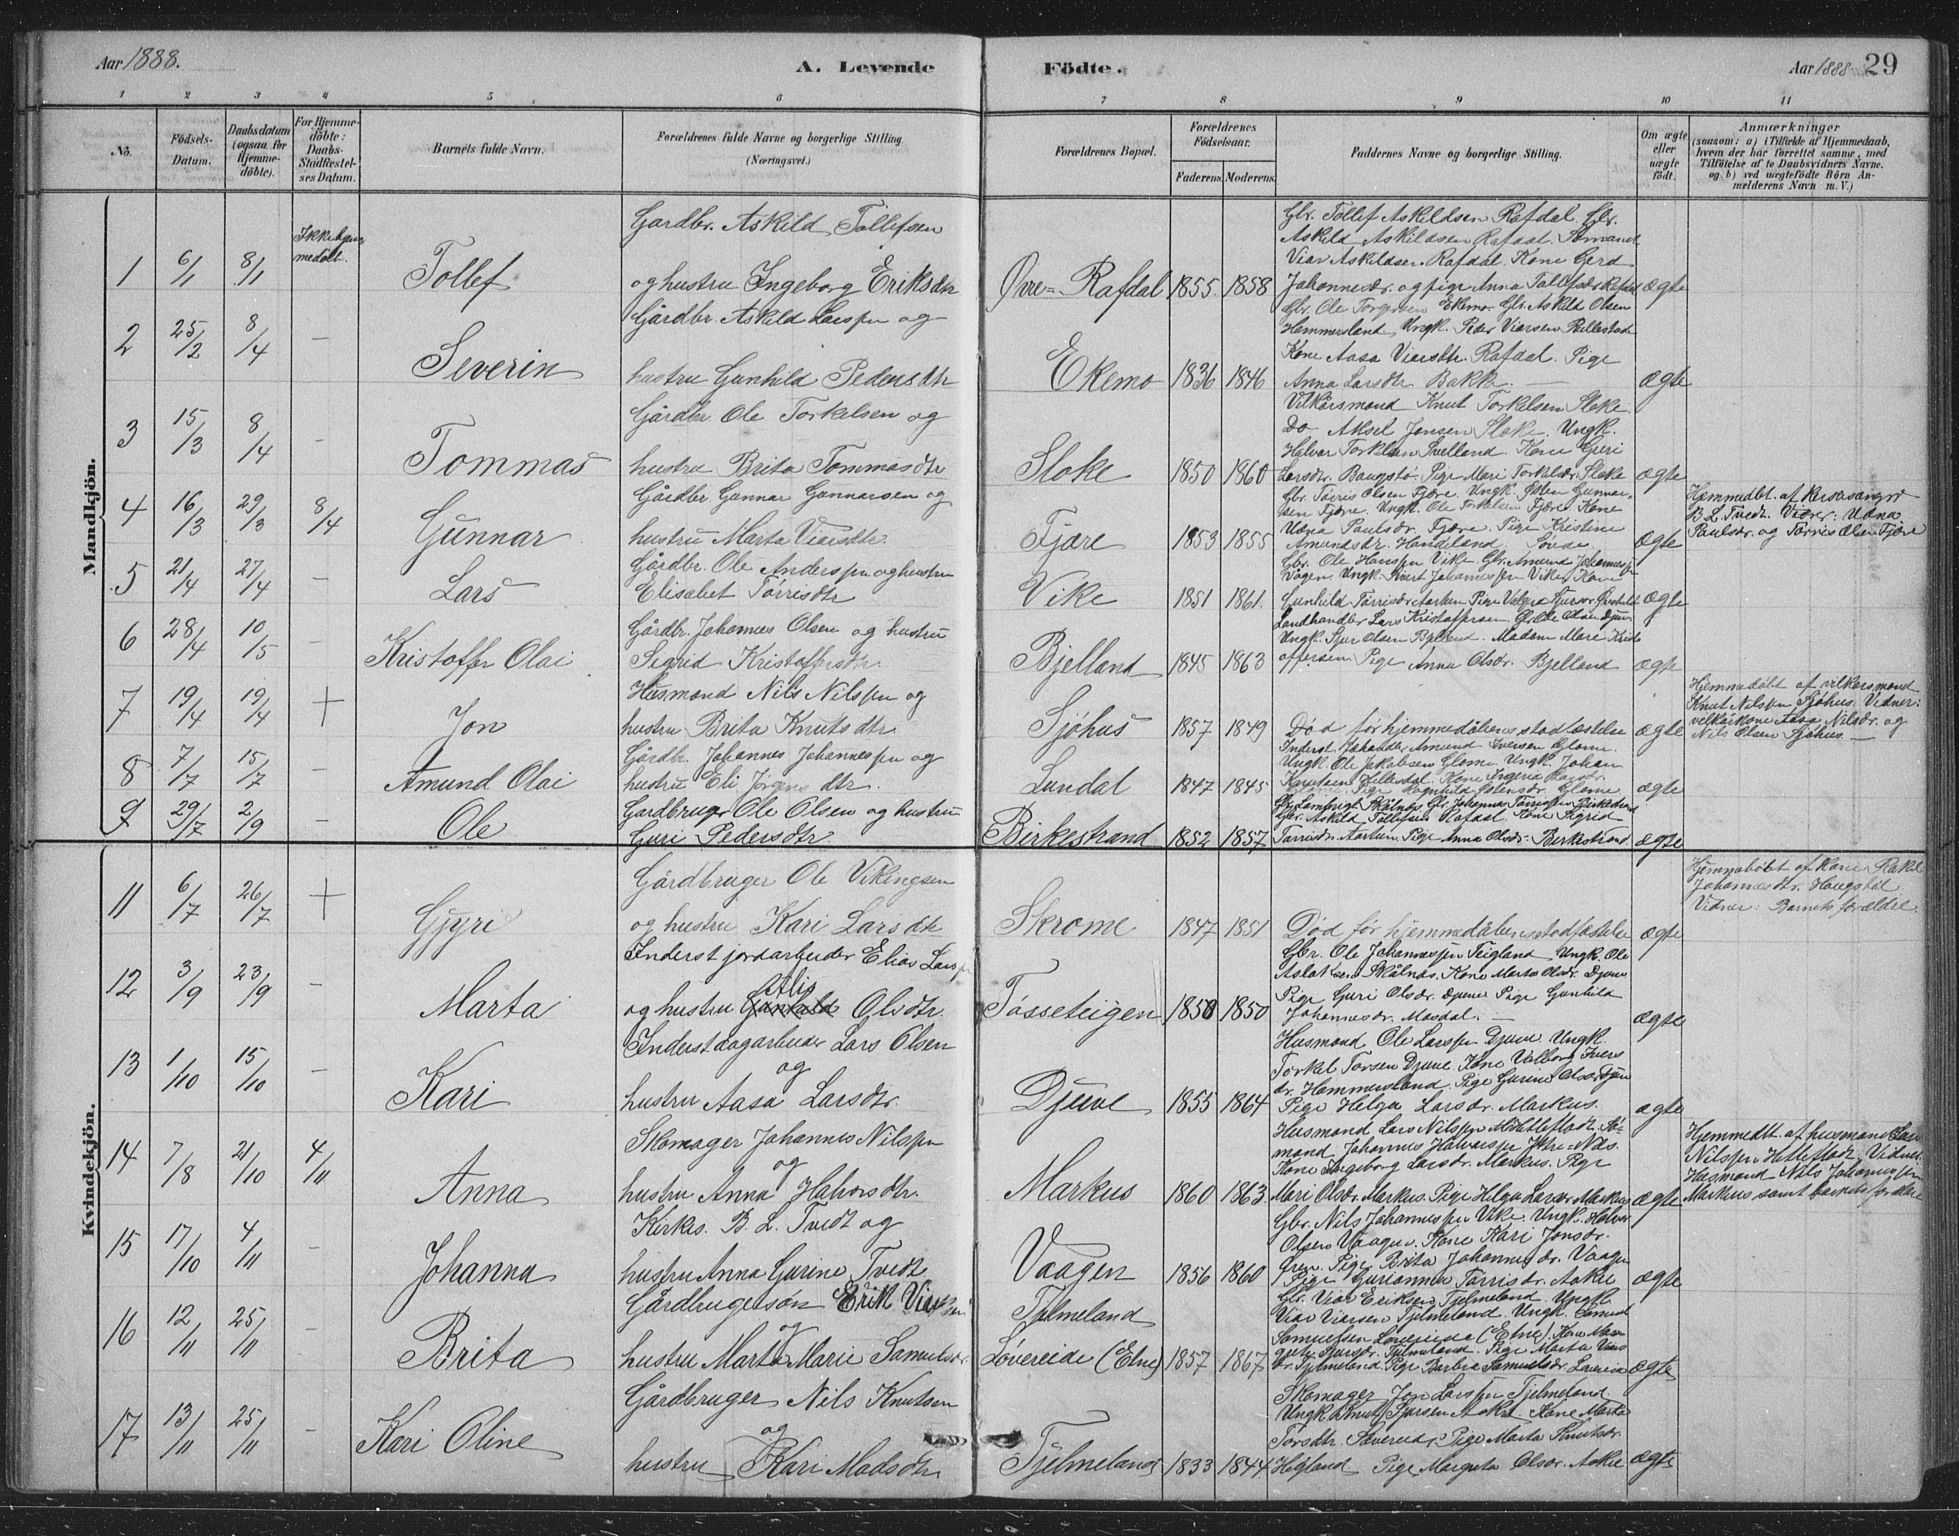 Aar 1888.
A. Levende Födte.
Aar 1888 29
1 2 3 4 5 6 7 8 9 10 11
No.
Födsels-Datum.
Daabsdatum (ogsaa for Hjemme-döbte).
For Hjemme-döbte: Daabs-Stadfæstel-ses Datum.
Barnets fulde Navn.
Forældrenes fulde Navne og borgerlige Stilling.
(Næringsvei.)
Forældrenes Bopæl.
Forældrenes Födselsaar.
Faderens. Moderens.
Faddernes Navne og borgerlige Stilling.
Om ægte eller uægte födt.
Anmærkninger
(saasom: a) i Tilfælde af Hjemmedaab, hvem der har forrettet samme, med Tilföielse af to Daabsvidners Navne. og b) ved uægtefödte Börn An-melderens Navn m. V.)
Mandkjön.
1 6/1 8/1 Ikke hjem-medøbt. Tollef
Gardbr. Askild Tollefsen
og hustru Ingeborg Eriksdtr
Øvre-Rafdal 1855 1858
Gbr. Tollef Askildsen Rafdal. Gbr.
Askild Askildsen Rafdal. Sømand
Viar Askildsen Rafdal. Kone Gerd
Johannesdr. og pige Anna Tollefsdr. Rafdal
ægte
2 25/2 8/4 - Severin
Gårdbr. Askild Larsen og
hustru Gunhild Pedersdtr
Ekemo 1836 1846
Gbr. Ole Torgersen Ekemo. Gbr. Askild Olsen
Hammersland Ungk. Peder Viarsen Rullestad
Kone Aasa Viarsdtr. Rafdal. Pige
Anna Larsdtr. Bakk.
ægte
3 15/3 8/4 - Tommas
Gårdbr. Ole Torkelsen og
hustru Brita Tommasdtr
Sloke 1850 1860
Vilkårsmand Knut Torkelsen Sloke
Do Aksel Jonsen Sloke. Ungk.
Halvar Torkelsen Svelland Kone Guri
Larsdtr. Pige Mari Torkelsdr. Sloke
ægte
4 16/3 29/3 8/4 Gunnar
Gårdbr. Gunnar Gunnarsen og
hustru Marta Viarsdtr
Fjære 1853 1855
Gbr. Tørris Olsen Fjære. Ungk. Østen Gunnar-
sen Fjære. Ungk. Ole Torkelsen Fjære Kone
Udna Paulsdr. Fjære. Pige Kristine
Amundsdr. Handeland.
ægte
Hjemmedbt. af kirkesanger
B L Tvedt. Vidner: Udna
Paulsdr. og Tørris Olsen Fjære
5 21/4 27/4 - Lars
Gårdbr. Ole Andersen og hustru
Elisabet Tørrisdtr
Vike 1851 1861.
Gbr. Ole Hansen Vike. Gbr. Amund Johannessen
Vågen Ungk. Johannessen Vike. Kone
Gunhild Tørrisdr. Pige
ægte
6 28/4 10/5 - Kristoffer Olai
Gårdbr. Johannes Olsen og hustru
Sigrid Kristoffersdtr
Bjelland 1845 1863
Landhandler Lars Kristoffersen Olsen Djuv
Ungk. Sjur Olsen Bjelland. Madam Mari Krist-
offersen Pige Anna Olsdr. Bjelland
ægte
7 19/4 19/4 + Jon
Husmand Nils Nilsen og
hustru Brita Knutsdtr
Sjøhus 1857 1849
Død før hjemmedåbens stadfæstelse
ægte
Hjemmedøbt af vilkårsmand
Knut Nilsen Sjøhus. Vidner:
vilkårkone Aasa Nilsdr. og
Nils Olsen Sjøhus.
8 7/7 15/7 - Amund Olai
Gårdbr. Johannes Johannessen og
hustru Eli Jørgensdtr.
Lundal 1847 1845
Inderst Johannes Amund Iversen Glome.
Ungk. Ole Jakobsen Glome Ungk. Johan
Knutsen Kone
Pige Glome
ægte
9 29/7 2/9 - Ole
Gardbruger Ole Olsen og hustru
Guri Pedersdtr.
Birkestrand 1852 1857
Gbr. Lambrigt Skålnes Gbr. Johannes Tørrissen Birkestrand
Gbr. Askild Tollefsen Rafdal Kone Sigrid
Tørrisdr. Aartun Pige Anna Olsdr. Birkestrand
ægte
Kvindekjön.
11 6/7 26/7 + Gjyri
Gårdbruger Ole Vikingsen
og hustru Kari Larsdtr
Skrome 1847 1851
Død før hjemmedåbens stadfæstelse
ægte
Hjemmedøbt af kone Rakel
Johannesdtr. Haugstøl.
Vidner: Barnets forældre.
12 3/9 23/9 - Marta
Inderst jordarbeider Elias Larsen
Alis
og hustru Gunhild Olsdtr.
Tøsseteigen 1850 1850
Gbr. Ole Johannessen Teigland Ungk. Ole
Aslaksen Skålnæs. Kone Marta Olsdr. Djuve
Pige Guri Olsdr. Djuve Pige Gunhild
Johannesdr. Mosdal.
ægte
13 1/10 15/10 - Kari
Inderst dagarbeider Lars Olsen
og
hustru Aasa Larsdtr.
Djuve 1855 1864
Husmand Ole Larsen Djuve Ungk.
Torkel Torsen Djuve. Kone Valborg Ivers-
dr. Hammersland. Pige Gurine Olsdr. Djuve
Pige Helga Larsdr. Markus.
ægte
14 7/8 21/10 4/11 Anna
Skomager Johannes Nilsen
og
hustru Anna Halvorsdtr.
Markus 1860 1863
Husmand Lars Nilsen Sø-
mand Johannes Halvorsen Næs.
Kone Ingeborg Larsdr. Markus. Pige
Mari Olsdr. Markus. Pige Helga Larsdr. Markus
ægte
Hjemmedt. af husmand Lars
Nilsen Vidner
Husmand Nils Johannessen
Markus samt barnets forældre
15 17/10 4/11 - Johanna
Kirkes. B. L. Tvedt og
hustru Anna Gurine Tvedt
Vaagen 1856 1860
Gbr. Nils Johannessen Vike. Ungk. Halvor
Olsen Vaagen. Kone Kari Jonsdr.
Pige Brita Johannesdr. Vaagen
Pige Gurianna Tørrisdr. Askre
ægte
16 12/11 25/11 - Brita
Gårdbrugersøn Erik Viarsen
og
hustru Marta Marie Samuelsdr.
Tjelmeland
Løvereide (Etne) 1857 1867
Gbr. Viar Eriksen Tjelmeland. Ungk.
Viar Viarsen Tjelmeland. Ungk. Samuel
Samuelsen Løvereide (Etne). Kone Mar-
grete Tjelmeland. Pige Marta Viars-
dr. Tjelmeland Pige Barbra Samuelsdr. Løvereide
ægte
17 13/11 25/11 - Kari Oline
Gårdbruger Nils Knutsen
og
hustru Kari Madsdtr
Tjelmeland 1833 1844
Skomager Jon Larsen Tjelmeland.
Ungk Knut Sjursen Askre Kone Marta
Torsdtr. Pige Marta Knutsdr.
Høgland Pige Margreta Olsdr. Askre
ægte